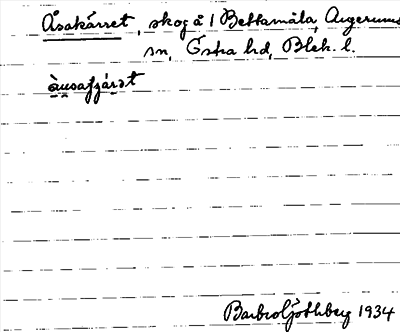 Åsakärret, skog å 1 Bettamåla, Augerums
sn, Östra hd, Blek. l.
åusafzárət
Barbro Ljóthberg 1934